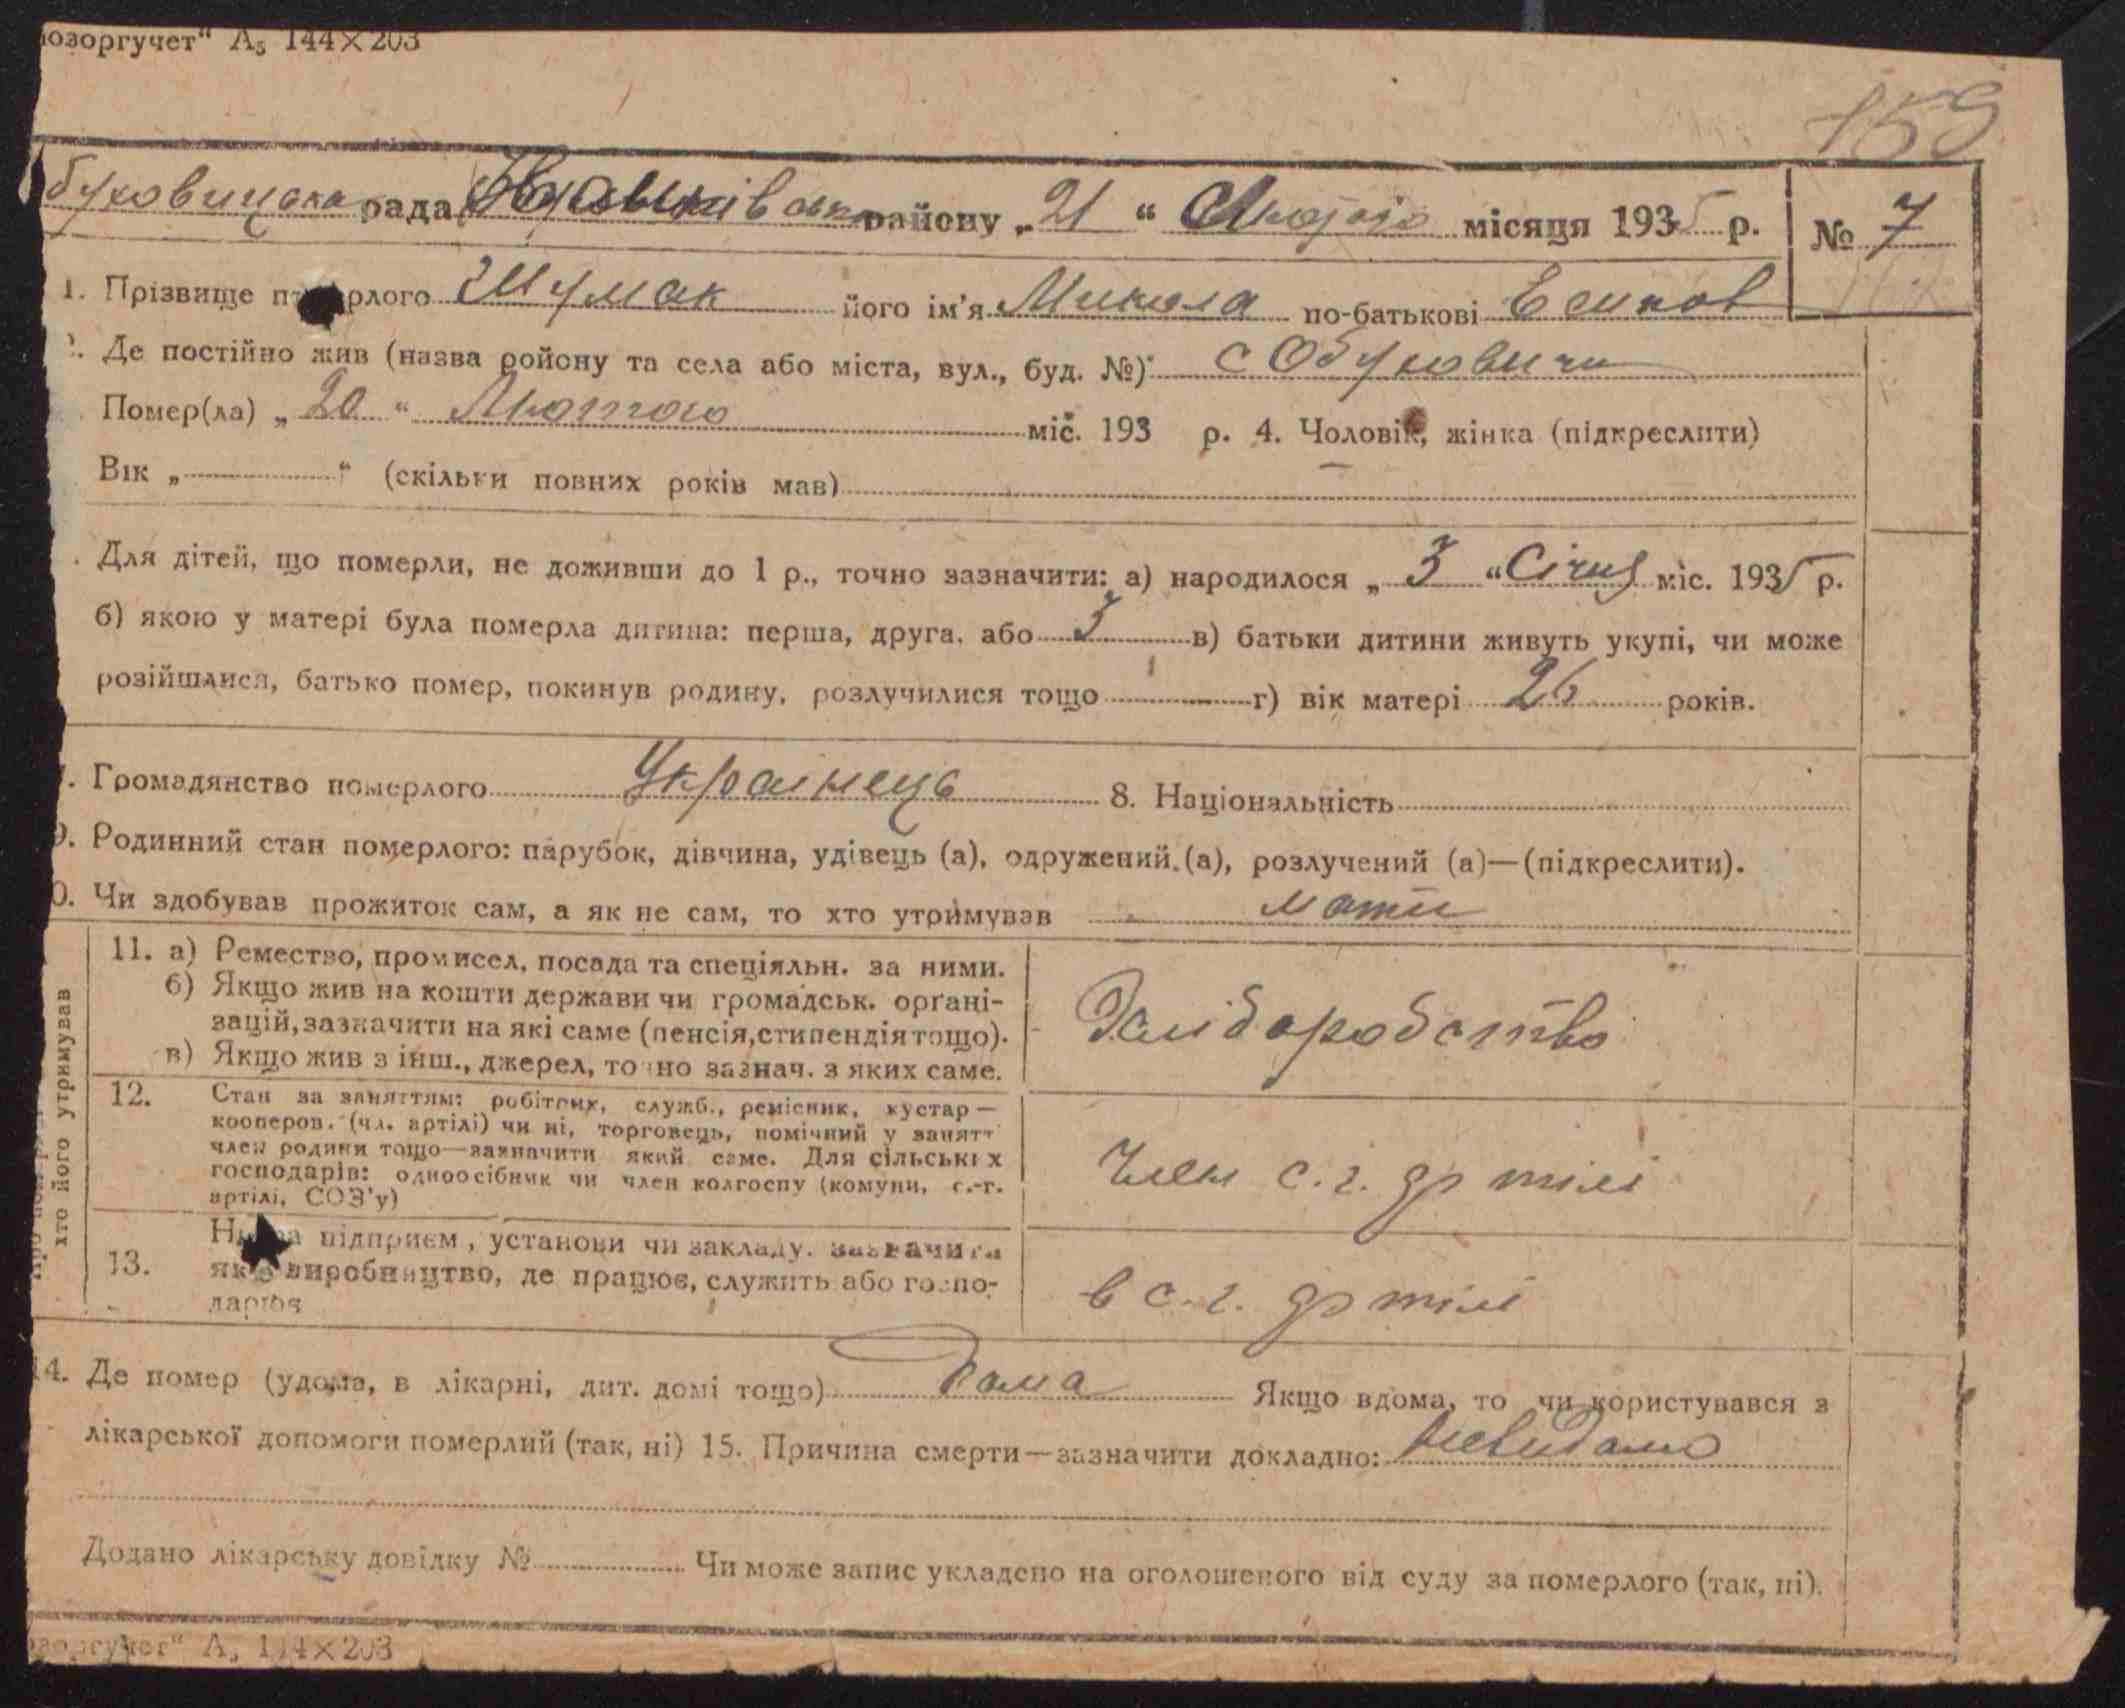 озоргучет“ А₅ 144×203
159
буховицька рада району „21“ Лютого місяця 1935 р. № 7
1. Прізвище п рлого Шумак його ім'я Микола по-батькові
. Де постійно жив (назва ройону та села або міста, вул., буд. №) с Обуховичи
Помер(ла) „20“ Лютого міс. 193 р. 4. Чоловік, жінка (підкреслити)
Вік „ “ (скільки повних років мав)
. Для дітей, що померли, не доживши до 1 р., точно зазначити: а) народилося „3“ Січня міс. 1935 р.
б) якою у матері була померла дитина: перша, друга, або 3 в) батьки дитини живуть укупі, чи може
розійшлися, батько помер, покинув родину, розлучилися тощо г) вік матері 26 років.
. Громадянство померлого Українець 8. Національність
9. Родинний стан померлого: парубок, дівчина, удівець (а), одружений (а), розлучений (а)—(підкреслити).
0. Чи здобував прожиток сам, а як не сам, то хто утримував мати
хто його утримував
11. а) Ремество, промисел, посада та спеціяльн. за ними.
б) Якщо жив на кошти держави чи громадськ. орґані-
зацій, зазначити на які саме (пенсія, стипендія тощо).
в) Якщо жив з інш., джерел, точно зазнач. з яких саме.
12. Стан за заняттям: робітник, служб., ремісник, кустар—
кооперов. (чл. артілі) чи ні, торговець, помічний у занятт
член родини тощо—зазначити який саме. Для сільських
господарів: одноосібник чи член колгоспу (комуни, с.-г.
артілі, СОЗ'у)
Член с. г. артілі
13. На ва підприєм, установи чи закладу, зазначити
яке виробництво, де працює, служить або госпо-
дарює
в с. г. артілі
14. Де помер (удома, в лікарні, дит. домі тощо) Дома Якщо вдома, то чи користувався з
лікарської допомоги померлий (так, ні) 15. Причина смерти—зазначити докладно: невидомо
Додано лікарську довідку № Чи може запис укладено на оголошеного від суду за померлого (так, ні).
озоргучет“ А₅ 144×203